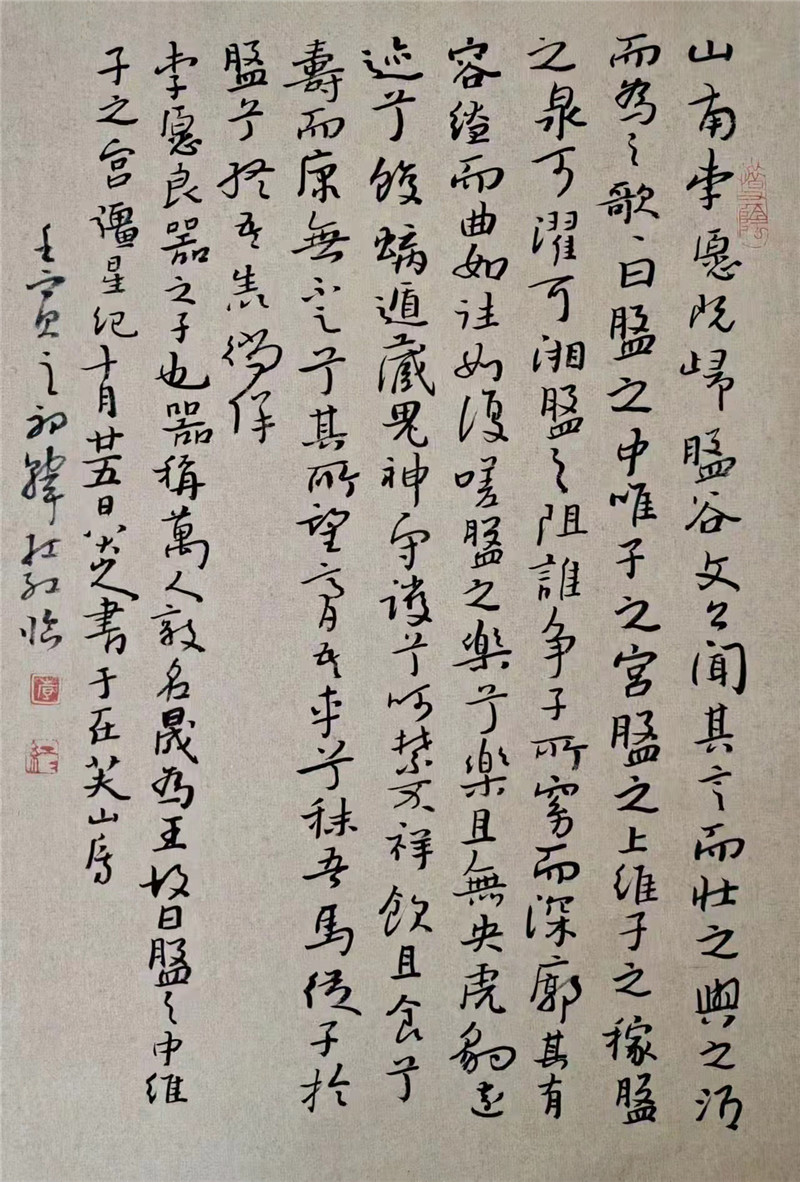 山南李愿既歸盤谷文公聞其言而壯之與之酒
而爲之歌曰盤之中唯子之宮盤之上維子之稼盤
之泉可濯可湘盤之阻誰爭子所窈而深廓其有
容繚而曲如往如復嗟盤之樂兮樂且無央虎豹遠
迹兮蛟螭遁藏鬼神守護兮呵禁不祥飲且食兮
壽而康無不足兮其所望膏吾車兮秣吾馬從子於
盤兮終吾生徜徉
李愿良器之子也器稱萬人敵名晟爲王故曰盤之中維
子之宮彊星紀十月廿五日八大山人書于在芙山房
壬寅之初 紅臨